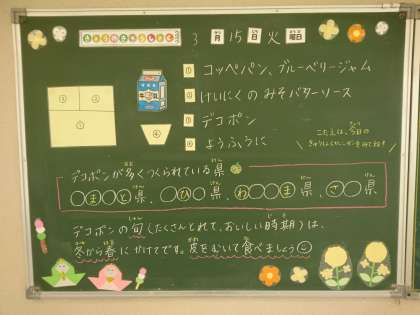 きょうのきゅうしょく
3月15日火曜日
① コッペパン、ブルーベリージャム
② けいにくのみそバターソース
③ デコポン
④ ようふうに
③ ① ② ④
牛乳
こたえは、今日の
デコポンが多くつくられている県
○ま○と県、○ひ○県、わ○○ま県、さ○県
デコポンの旬(たくさんとれて、おいしい時期)は、
冬から春にかけてです。皮をむいて食べましょう